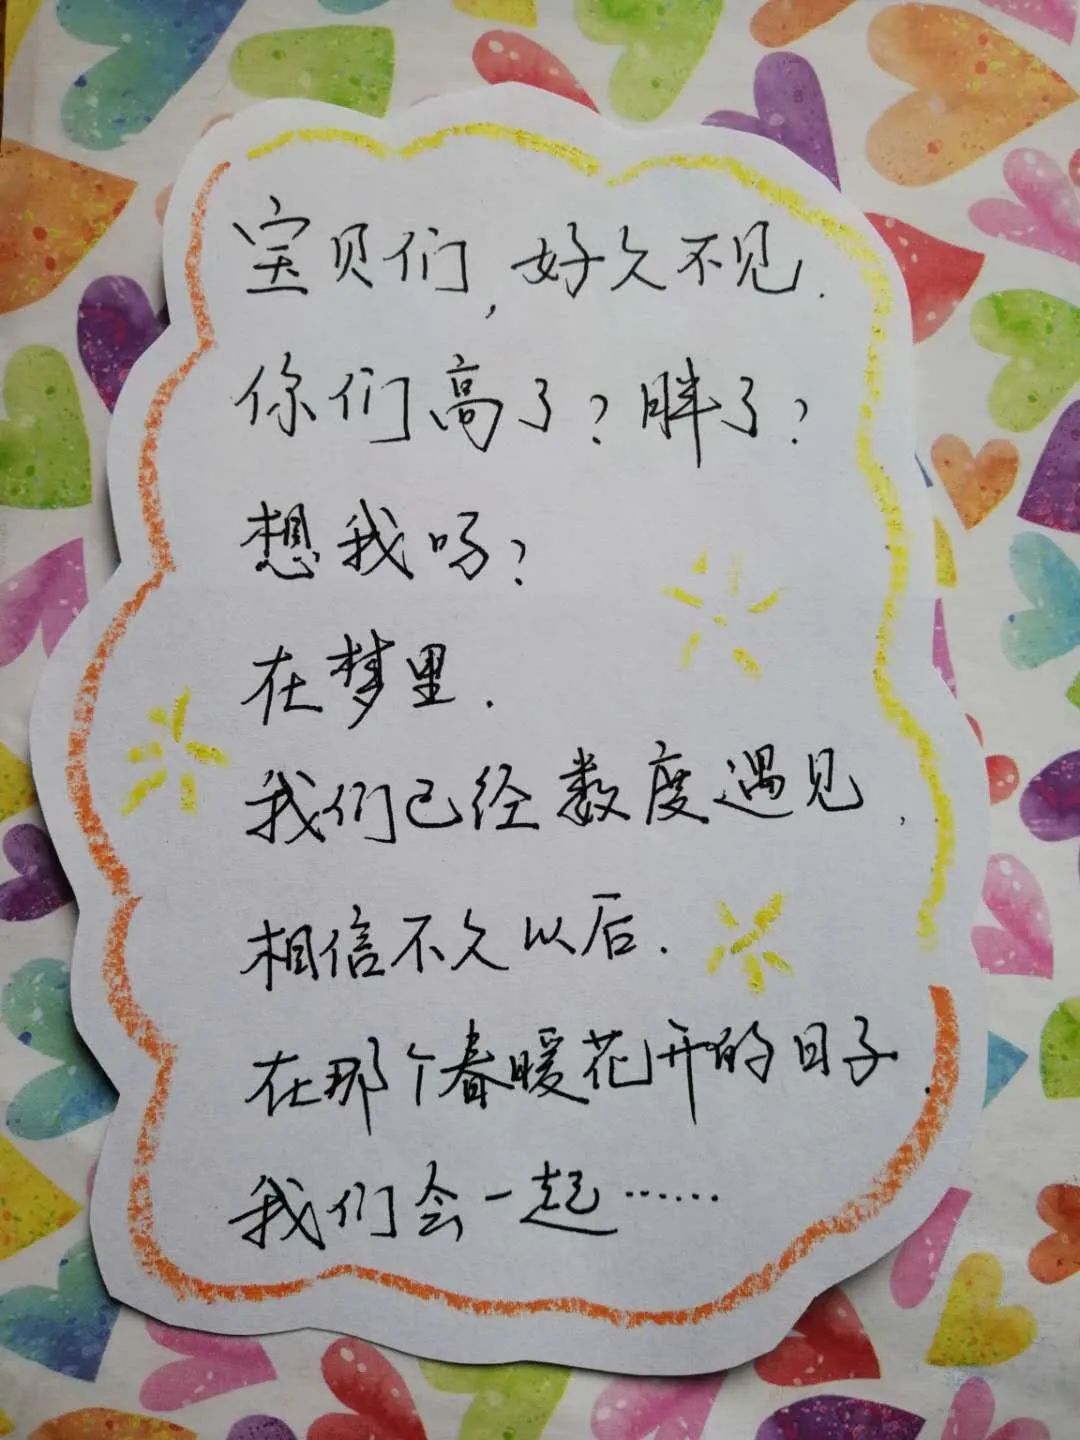 宝贝们,好久不见.
你们高了?胖了?
想我吗?
在梦里.
我们已经数度遇见,
相信不久以后.
在那个春暖花开的日子.
我们会一起……